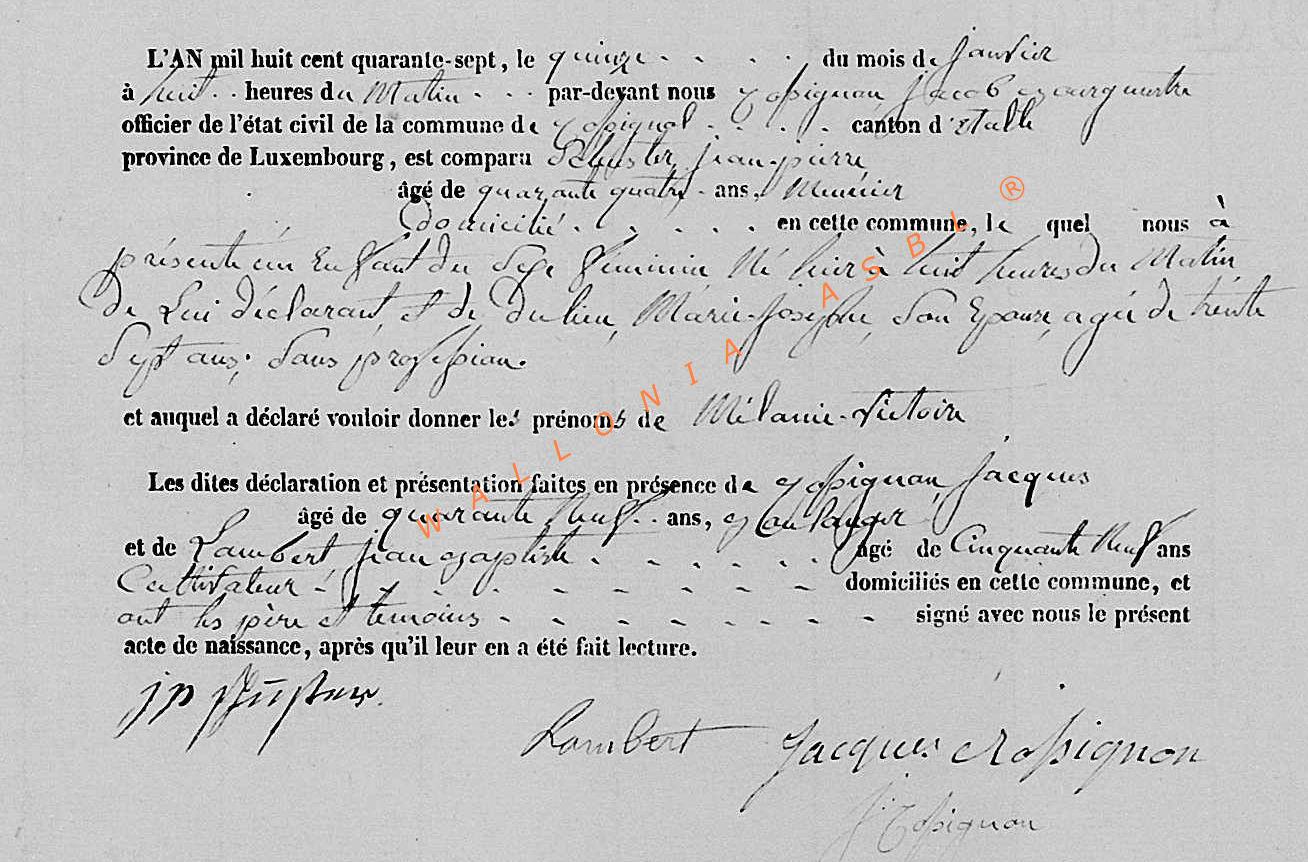 L'AN mil huit cent quarante-sept, le quinze - - - - du mois de janvier
à huit - - heures du Matin - - - par-devant nous Rossignon, Jacob Bourgmestre
officier de l'état civil de la commune de Rossignol - - - - canton d'Etalle
province de Luxembourg, est comparu Schuster, jean-pierre
âgé de quarante quatre - ans, Meunier
Domicilié - - - - - en cette commune, lequel nous à
présenté un Enfant du Sexe féminin Né hier à huit heures du Matin
De Lui déclarant et de Dulieu, Marie-Josephe, Son Epouse, agée de trente
Sept ans, Sans profession.
et auquel a déclaré vouloir donner les prénoms de Mélanie-Victoire
Les dites déclaration et présentation faites en présence de Rossignon, Jacques
âgé de quarante Neuf - - ans, Boulanger
et de Lambert, Jean Baptiste - - - - - - âgé de Cinquante Neuf ans
Cultivateur - - - - - - - - - domiciliés en cette commune, et
ont les père et temoins - - - - - - - - signé avec nous le présent
acte de naissance, après qu'il leur en a été fait lecture.
jp Schuster
Lambert Jacques Rossignon
J. Rossignon
WALLONIA ASBL ®